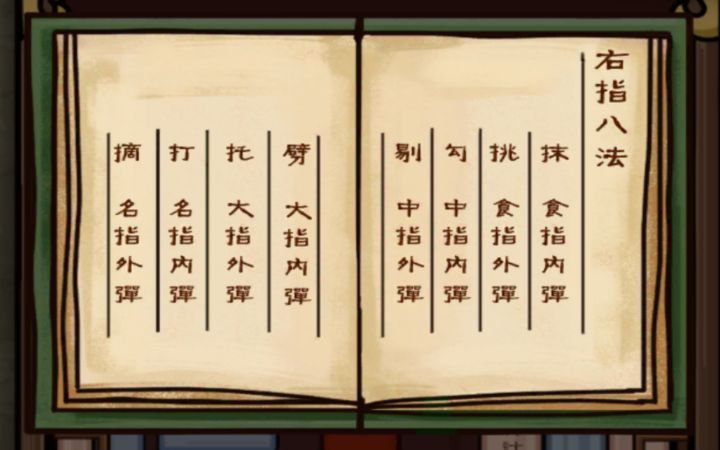 右指八法
抹 食指內彈
挑 食指外彈
勾 中指內彈
剔 中指外彈
劈 大指內彈
托 大指外彈
打 名指內彈
摘 名指外彈